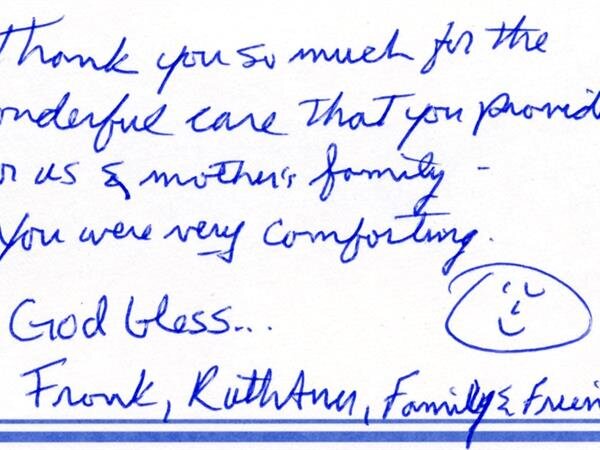 Thank you so much for the
onderful care that you provid
or us & mother's family -
You were very comforting.
God bless...
Frank, RuthAnn, Family & Frien